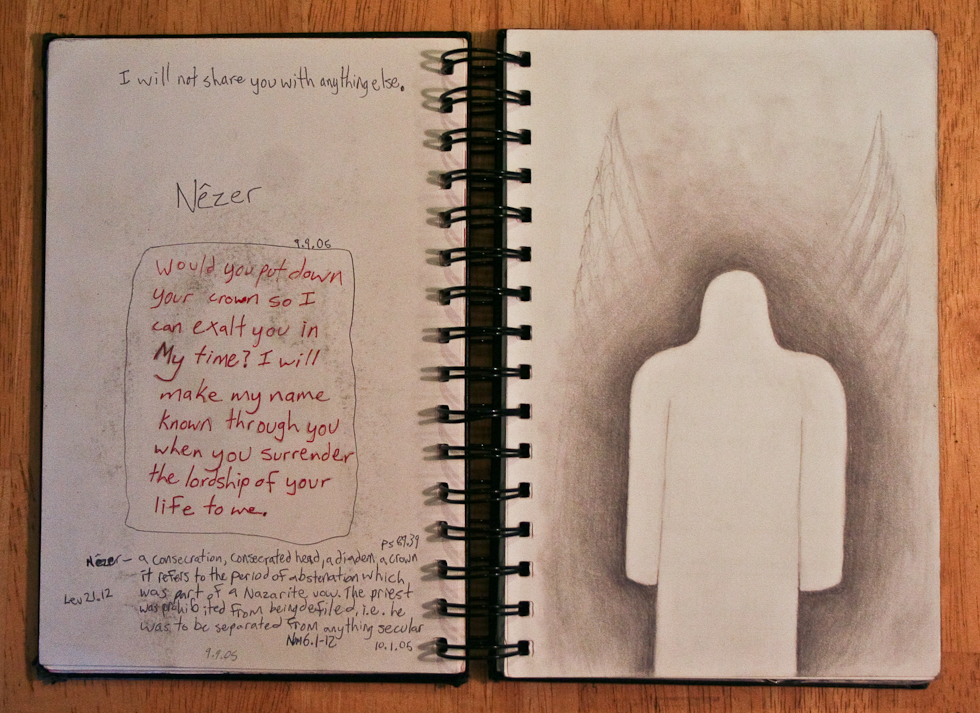 I will not share you with anything else.
Nêzer
9.9.05
Would you put down
your crown so I
can exalt you in
My time? I will
make my name
known through you
when you surrender
the lordship of your
life to me.
Ps 89.39
Nêzer – a consecration, consecrated head, a diadem, a crown
it refers to the period of abstenation which
Lev 21.12
was part of a Nazarite vow. The priest
was prohibited from being defiled, i.e. he
was to be separated from anything secular
Nm 6.1-12
10.1.05
9.9.05